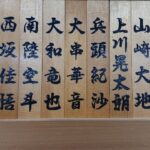 山崎大地
上川晃太朗
兵頭紀沙
大串華音
大和竜也
南陸空斗
西坂佳